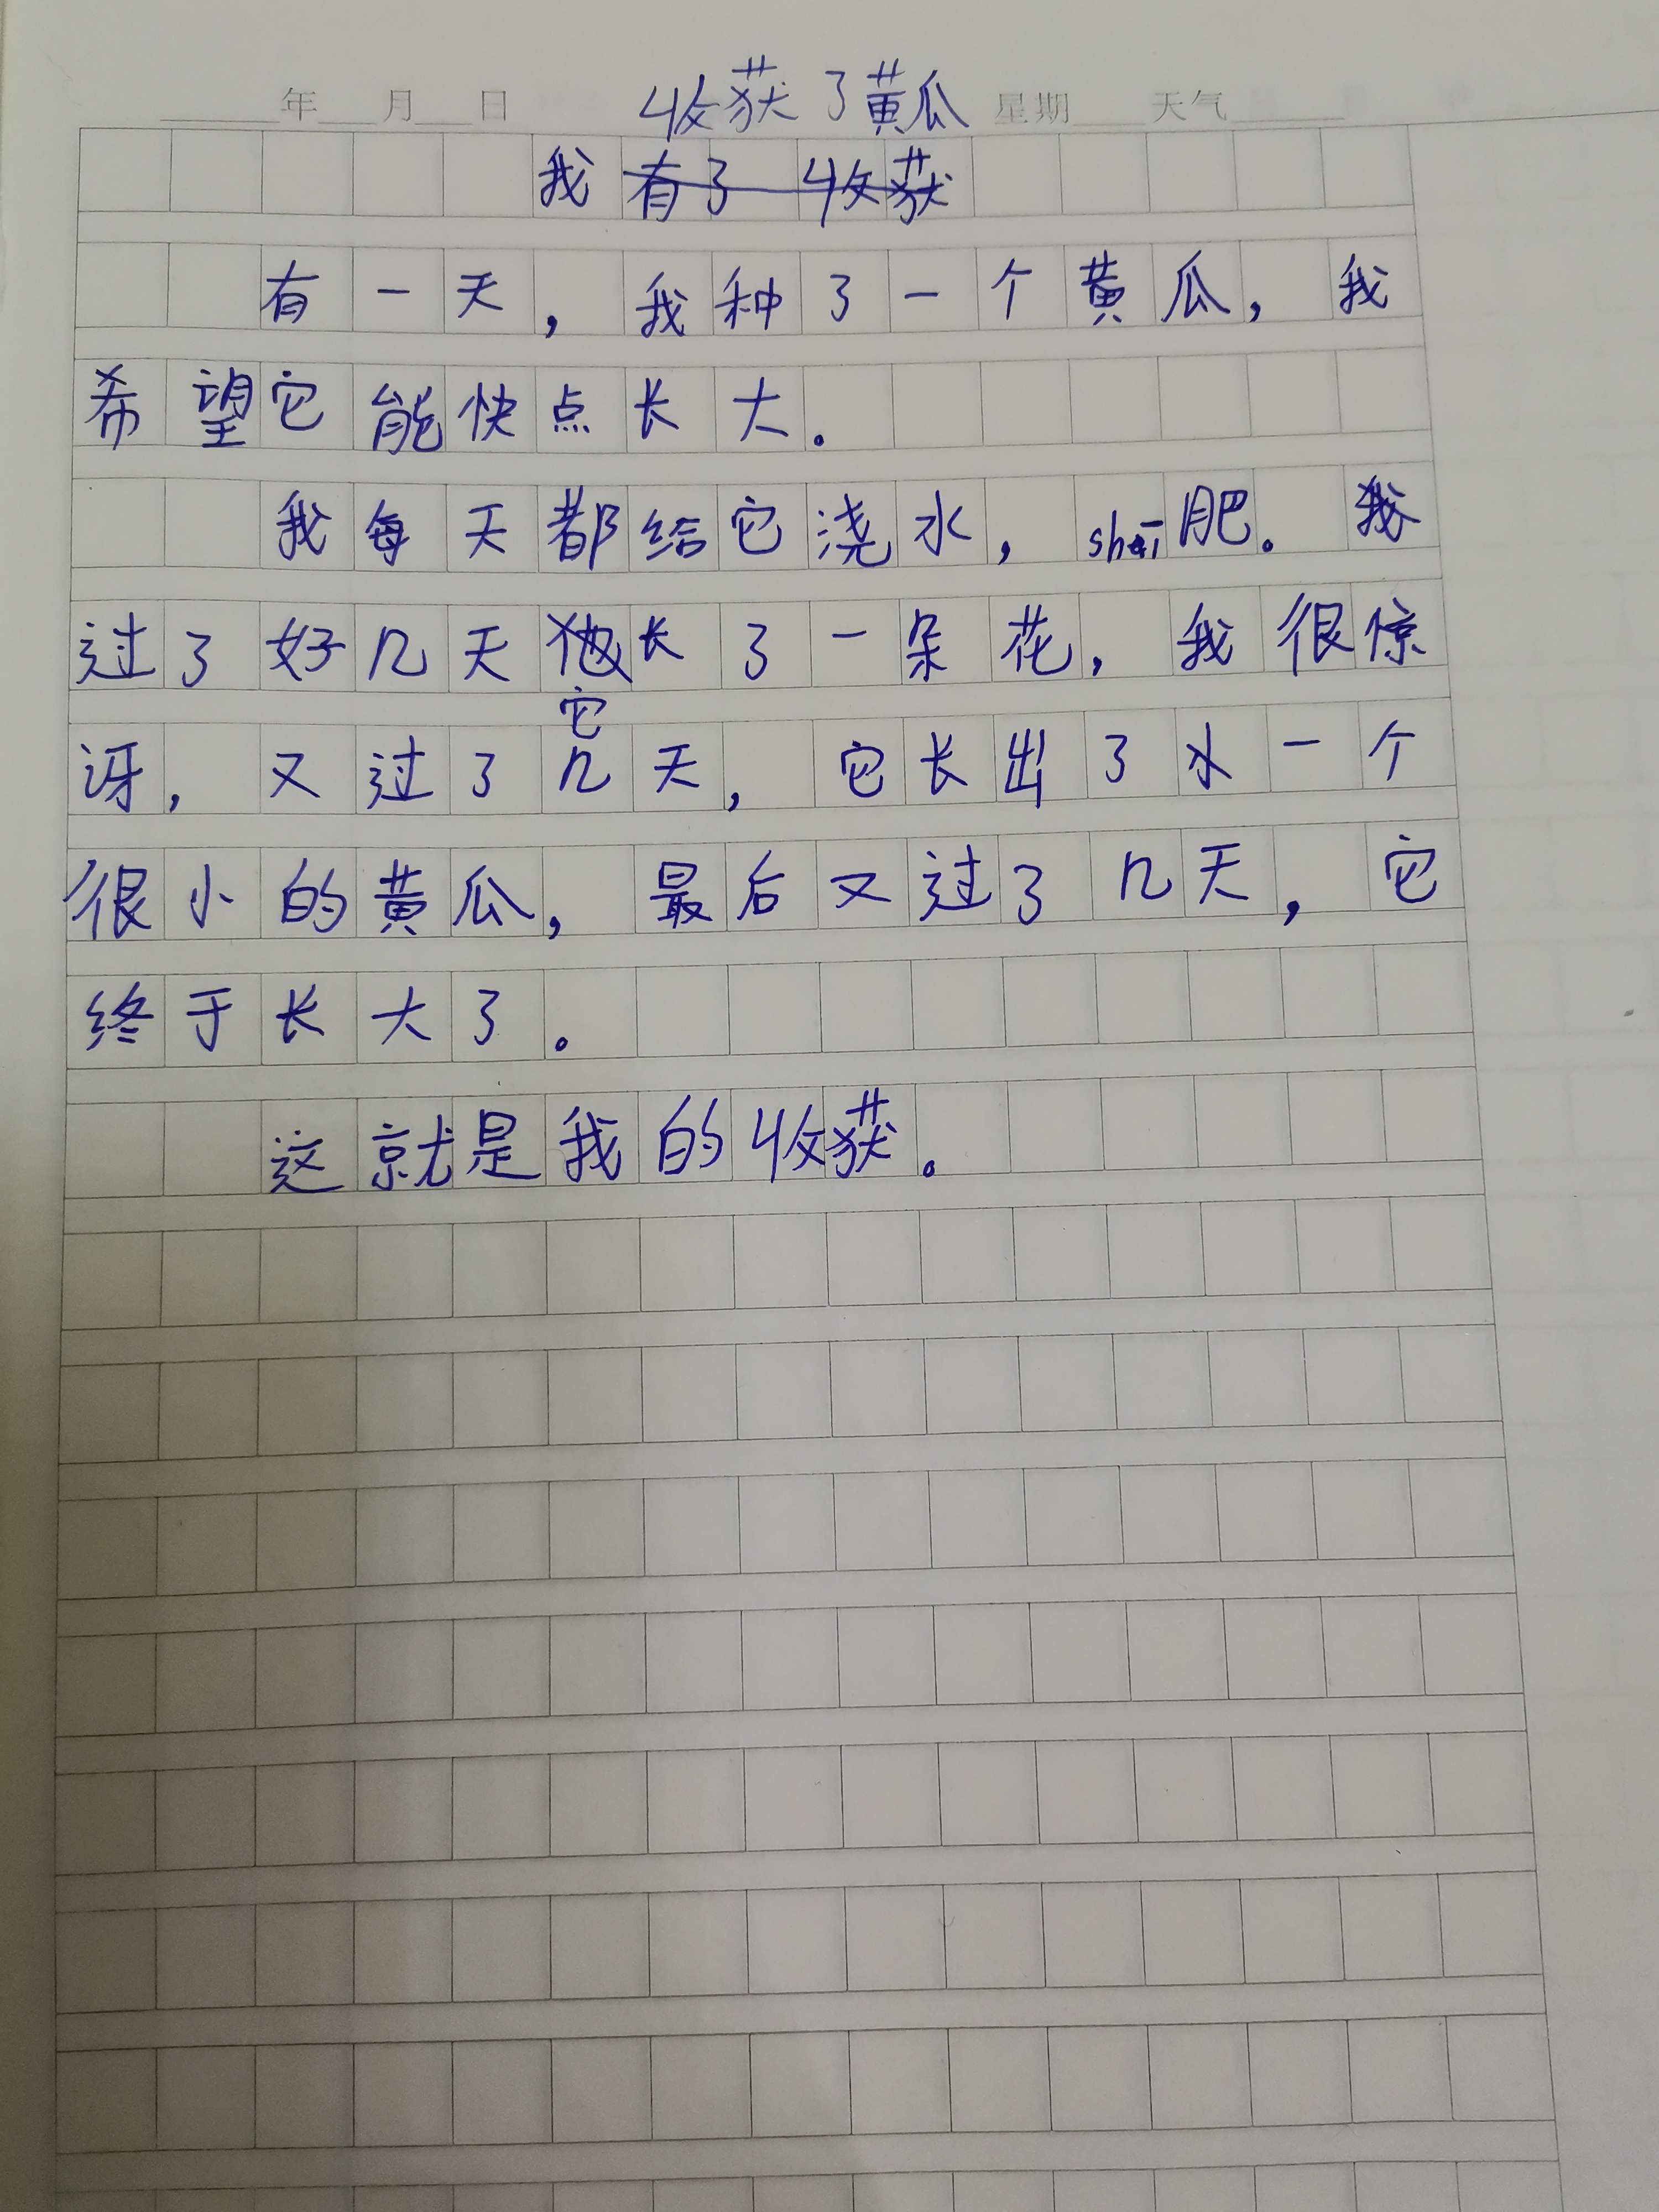 年 月 日 收获了黄瓜 星期 天气
我有了收获
有一天，我种了一个黄瓜，我
希望它能快点长大。
我每天都给它浇水，shī肥。我
过了好几天 长了一朵花，我很惊
它
讶，又过了几天，它长出了 一个
很小的黄瓜，最后又过了几天，它
终于长大了。
这就是我的收获。